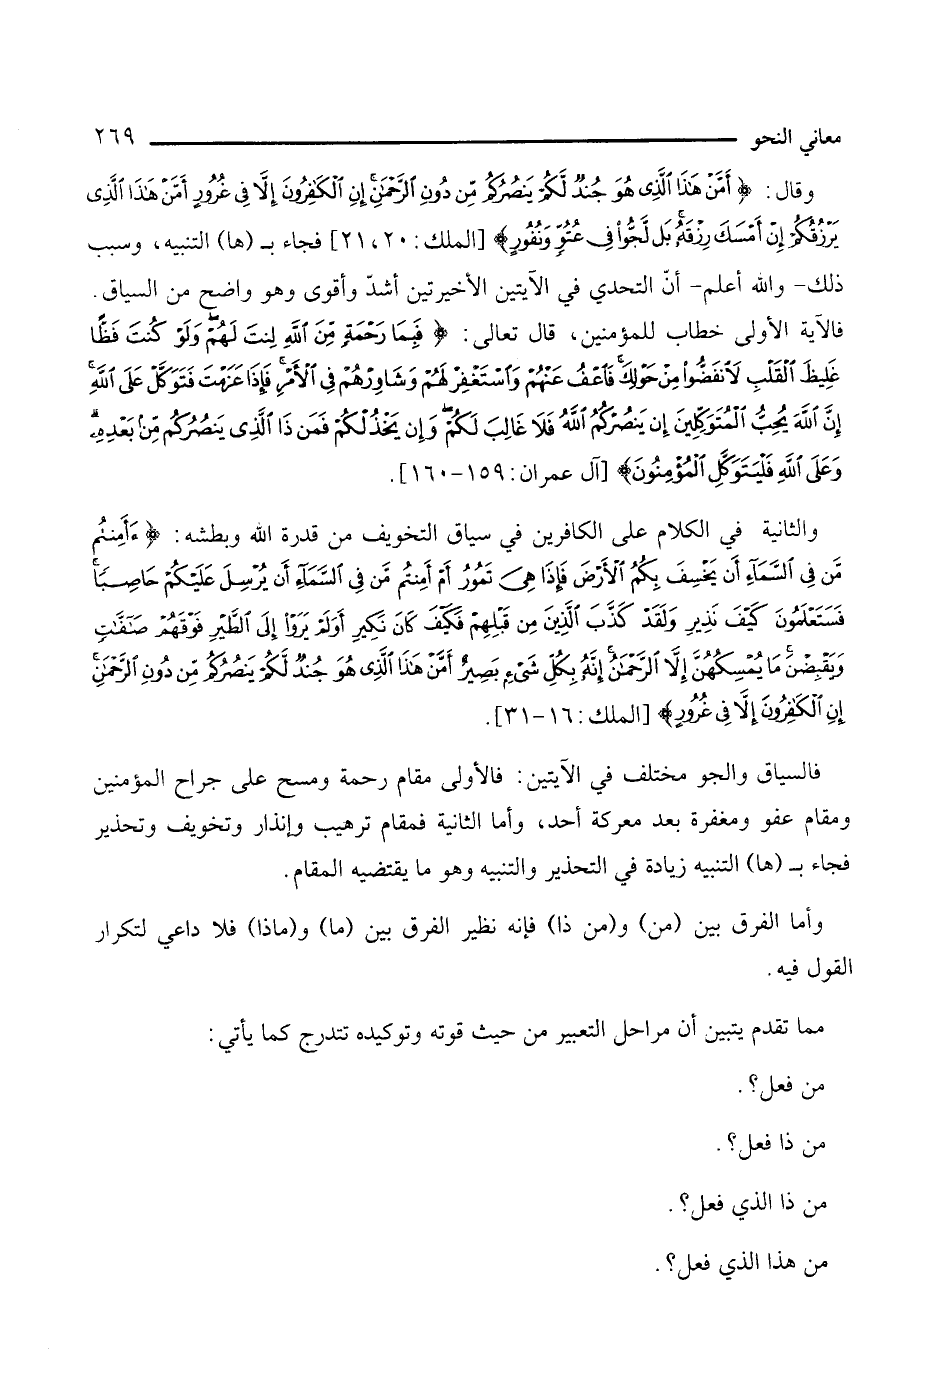 معاني النحو ٢٦٩
وقال: ﴿ أَمَّنْ هَٰذَا ٱلَّذِى هُوَ جُندٌ لَّكُمْ يَنصُرُكُم مِّن دُونِ ٱلرَّحْمَٰنِ ۚ إِنِ ٱلْكَٰفِرُونَ إِلَّا فِى غُرُورٍ أَمَّنْ هَٰذَا ٱلَّذِى
يَرْزُقُكُمْ إِنْ أَمْسَكَ رِزْقَهُۥ ۚ بَل لَّجُّوا۟ فِى عُتُوٍّ وَنُفُورٍ﴾ [الملك: ٢٠، ٢١] فجاء بـ (ها) التنبيه، وسبب
ذلك- والله أعلم- أنّ التحدي في الآيتين الأخيرتين أشدّ وأقوى وهو واضح من السياق.
فالآية الأولى خطاب للمؤمنين، قال تعالى: ﴿ فَبِمَا رَحْمَةٍ مِّنَ ٱللَّهِ لِنتَ لَهُمْ ۖ وَلَوْ كُنتَ فَظًّا
غَلِيظَ ٱلْقَلْبِ لَٱنفَضُّوا۟ مِنْ حَوْلِكَ ۖ فَٱعْفُ عَنْهُمْ وَٱسْتَغْفِرْ لَهُمْ وَشَاوِرْهُمْ فِى ٱلْأَمْرِ ۖ فَإِذَا عَزَمْتَ فَتَوَكَّلْ عَلَى ٱللَّهِ ۚ
إِنَّ ٱللَّهَ يُحِبُّ ٱلْمُتَوَكِّلِينَ إِن يَنصُرْكُمُ ٱللَّهُ فَلَا غَالِبَ لَكُمْ ۖ وَإِن يَخْذُلْكُمْ فَمَن ذَا ٱلَّذِى يَنصُرُكُم مِّنۢ بَعْدِهِۦ ۗ
وَعَلَى ٱللَّهِ فَلْيَتَوَكَّلِ ٱلْمُؤْمِنُونَ﴾ [آل عمران: ١٥٩-١٦٠].
والثانية في الكلام على الكافرين في سياق التخويف من قدرة الله وبطشه: ﴿ ءَأَمِنتُم
مَّن فِى ٱلسَّمَآءِ أَن يَخْسِفَ بِكُمُ ٱلْأَرْضَ فَإِذَا هِىَ تَمُورُ أَمْ أَمِنتُم مَّن فِى ٱلسَّمَآءِ أَن يُرْسِلَ عَلَيْكُمْ حَاصِبًا ۖ
فَسَتَعْلَمُونَ كَيْفَ نَذِيرِ وَلَقَدْ كَذَّبَ ٱلَّذِينَ مِن قَبْلِهِمْ فَكَيْفَ كَانَ نَكِيرِ أَوَلَمْ يَرَوْا۟ إِلَى ٱلطَّيْرِ فَوْقَهُمْ صَٰٓفَّٰتٍ
وَيَقْبِضْنَ ۚ مَا يُمْسِكُهُنَّ إِلَّا ٱلرَّحْمَٰنُ ۚ إِنَّهُۥ بِكُلِّ شَىْءٍۭ بَصِيرٌ أَمَّنْ هَٰذَا ٱلَّذِى هُوَ جُندٌ لَّكُمْ يَنصُرُكُم مِّن دُونِ ٱلرَّحْمَٰنِ ۚ
إِنِ ٱلْكَٰفِرُونَ إِلَّا فِى غُرُورٍ﴾ [الملك: ١٦-٣١].
فالسياق والجو مختلف في الآيتين: فالأولى مقام رحمة ومسح على جراح المؤمنين
ومقام عفو ومغفرة بعد معركة أحد، وأما الثانية فمقام ترهيب وإنذار وتخويف وتحذير
فجاء بـ (ها) التنبيه زيادة في التحذير والتنبيه وهو ما يقتضيه المقام.
وأما الفرق بين (من) و(من ذا) فإنه نظير الفرق بين (ما) و(ماذا) فلا داعي لتكرار
القول فيه.
مما تقدم يتبين أن مراحل التعبير من حيث قوته وتوكيده تتدرج كما يأتي:
من فعل؟.
من ذا فعل؟.
من ذا الذي فعل؟.
من هذا الذي فعل؟.